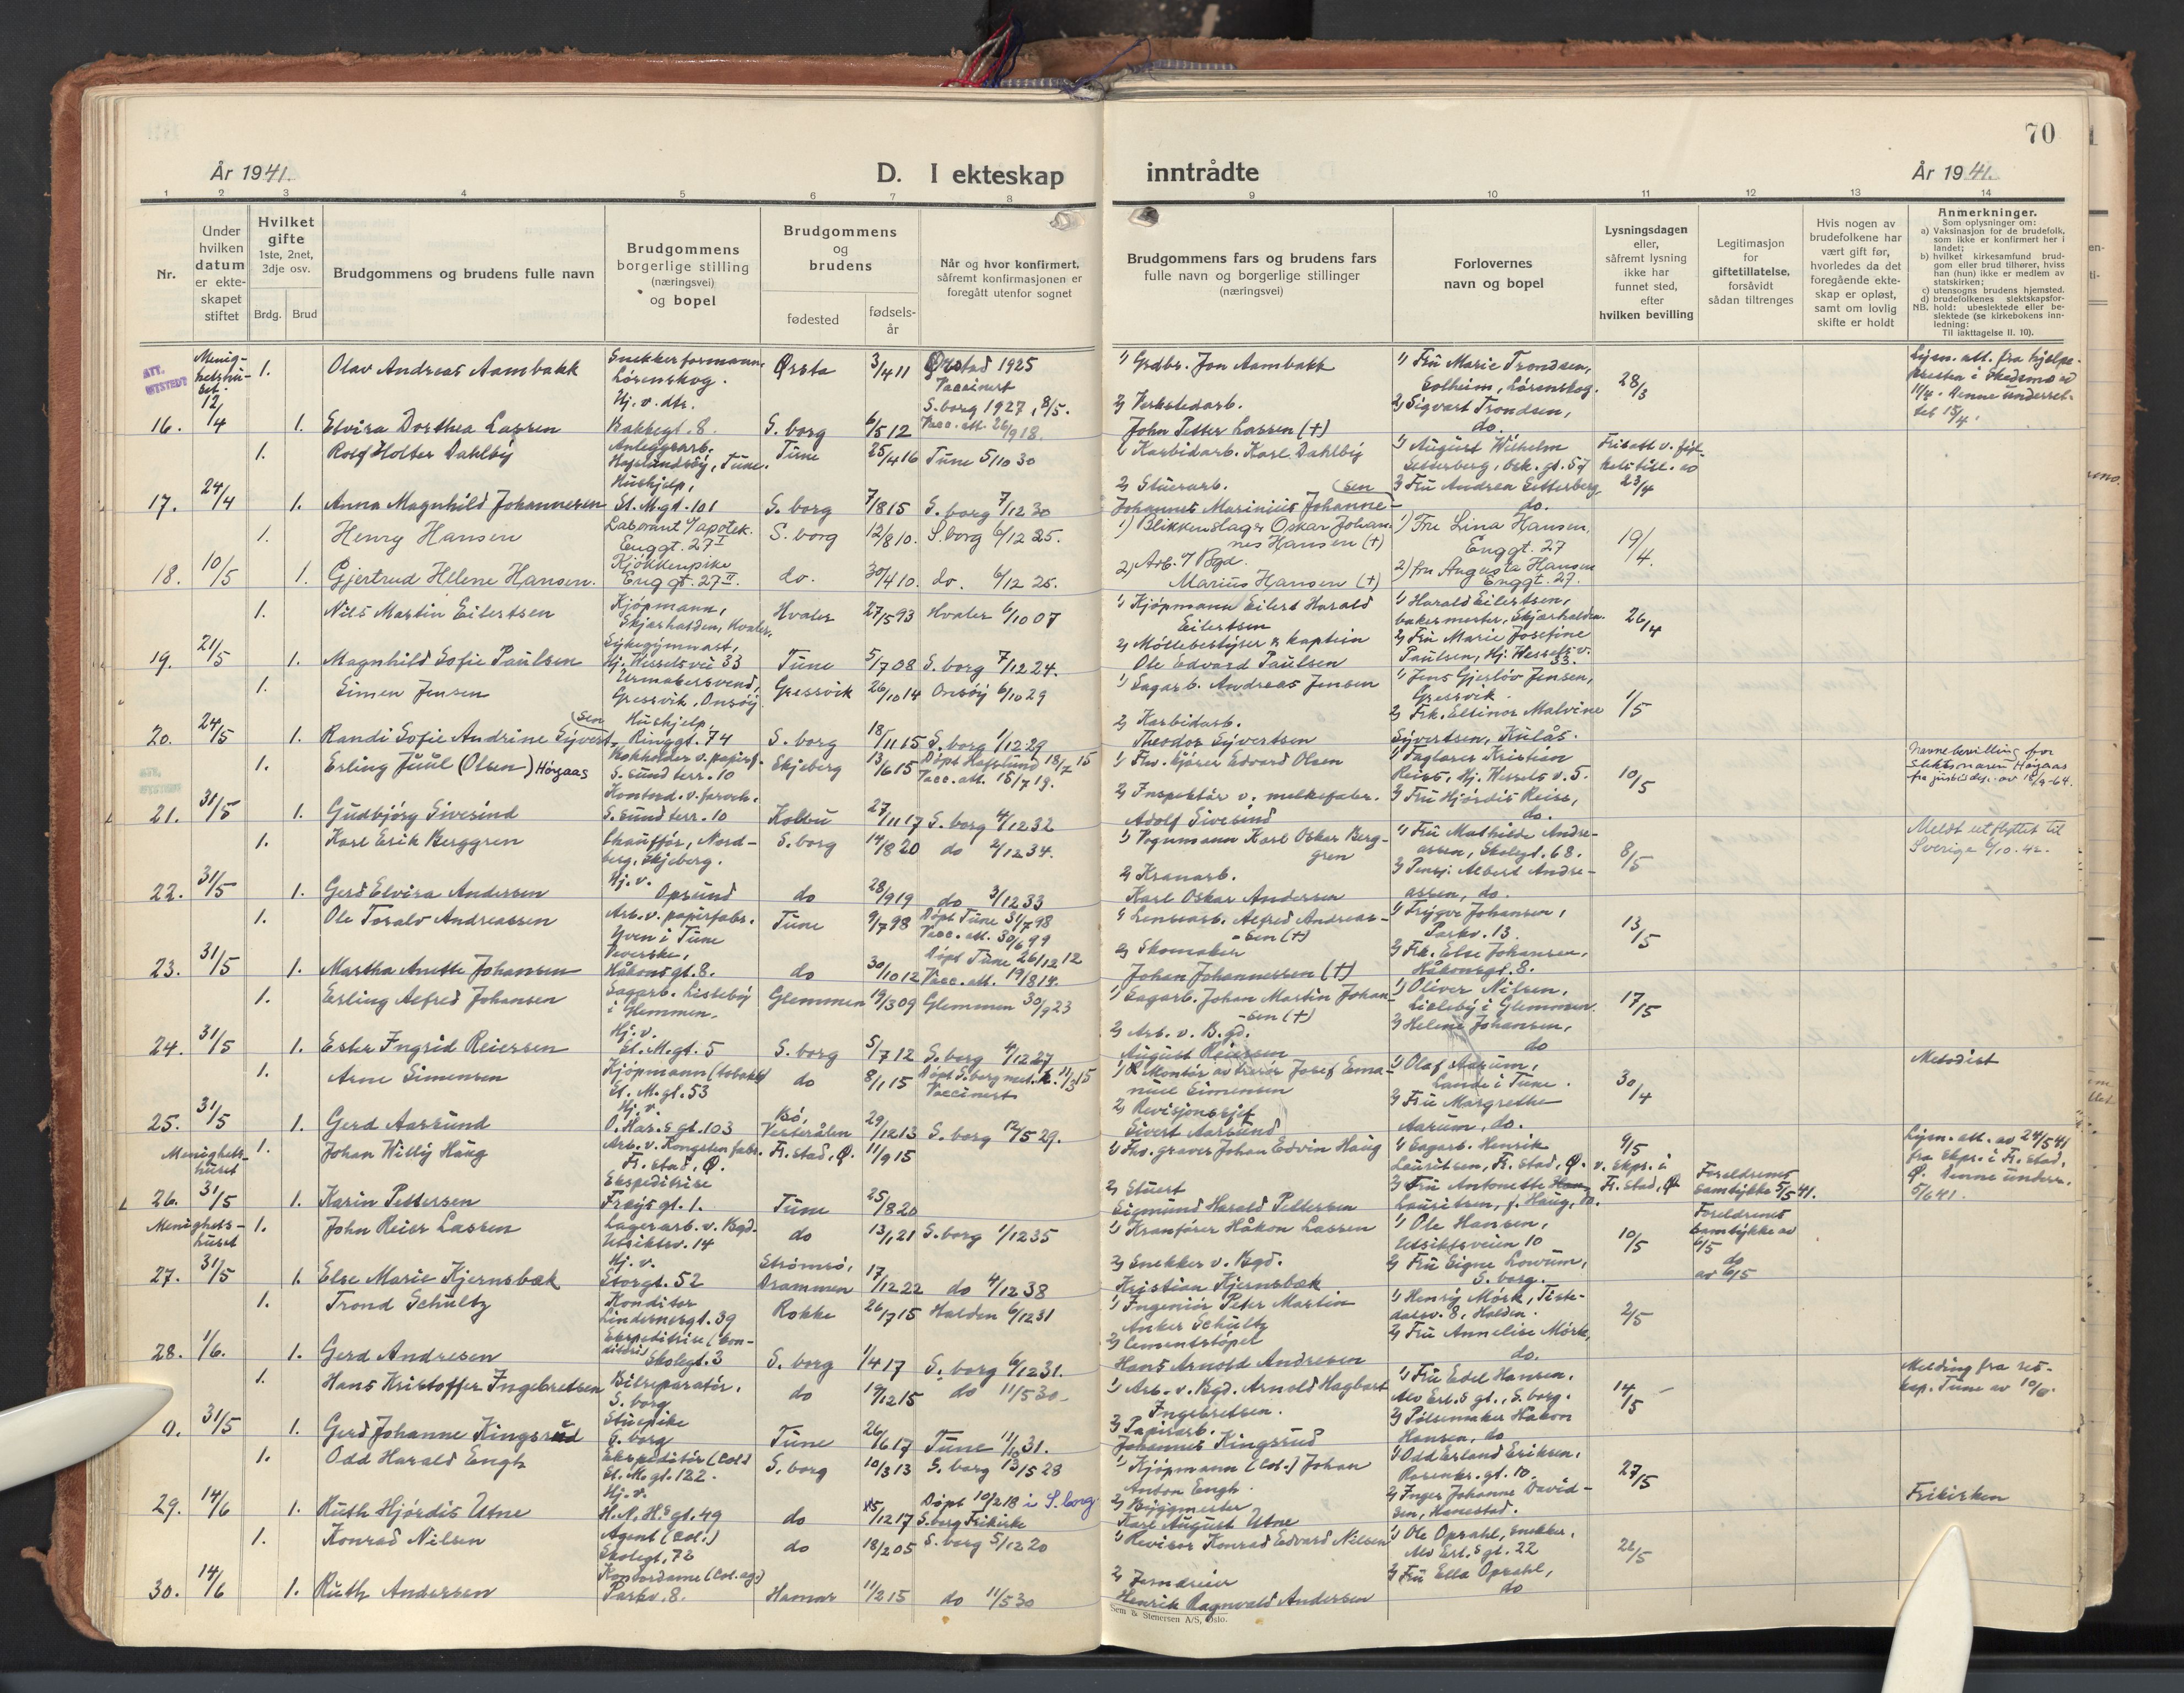 70
År 1941.
D. I ekteskap inntrådte
År 1941.
1 2 3 4 5 6 7 8 9 10 11 12 13 14
Nr.
Under hvilken datum er ekteskapet stiftet
Hvilket gifte 1ste, 2net, 3dje osv.
Brdg. Brud
Brudgommens og brudens fulle navn
Brudgommens borgerlige stilling (næringsvei) og bopel
Brudgommens og brudens
fødested
fødselsår
Når og hvor konfirmert, såfremt konfirmasjonen er foregått utenfor sognet
Brudgommens fars og brudens fars fulle navn og borgerlige stillinger (næringsvei)
Forlovernes navn og bopel
Lysningsdagen eller, såfremt lysning ikke har funnet sted, efter hvilken bevilling
Legitimasjon for giftetillatelse, forsåvidt sådan tiltrenges
Hvis nogen av brudefolkene har vært gift før, hvorledes da det foregående ekteskap er opløst, samt om lovlig skifte er holdt
Anmerkninger.
Som oplysninger om:
a) Vaksinasjon for de brudefolk, som ikke er konfirmert her i landet;
b) hvilket kirkesamfund brudgom eller brud tilhører, hviss han (hun) ikke er medlem av statskirken;
c) utensogns brudens hjemsted.
d) brudefolkenes slektskapsforhold: ubeslektede eller beslektede (se kirkebokens innledning:
NB. Til iakttagelse II. 10).
ATT. UTSTEDT
Menighetshuset. 12/4
1. Olav Andreas Aambakk Snekkerformann, Lørenskog. Ørsta 3/4 11 Ørstad 1925 Vaccinert
1) Grdbr. Jon Aambakk 1) Fru Marie Trondsen, Solheim, Lørenskog. 28/3
Lysn. att. fra hjelpepresten i Skedsmo av 11/4. Denne underrettet 15/4.
16. 1. Elvira Dorthea Lassen Hj. v. dtr. Bakkegt. 8. S. borg 6/5 12 S. borg 1927, 8/5. Vacc. att. 26/9 18.
2) Verkstedarb. John Petter Lassen (+) 2) Sigvart Trondsen, do.
1. Rolf Holter Dahlby Anleggsarb. Hafslundsøy, Tune. Tune 25/4 16 Tune 5/10 30
1) Karbidarb. Karl Dahlby 1) August Wilhelm Setterberg, Osk. gt. 57 23/4
17. 24/4 1. Anna Magnhild Johannesen Hushjelp, St. M. gt. 101 S. borg 7/8 15 S. borg 7/12 30
2) Stuerarb. Johannes Marinius Johannesen 2) Fru Andrea Setterberg, do.
1. Henry Hansen Laborant v/ apotek. Enggt. 27 I S. borg 12/8 10. S. borg 6/12 25.
1) Blikkenslager Oskar Johannes Hansen (+) 1) Fru Lina Hansen, Enggt. 27 19/4.
18. 10/5 1. Gjertrud Helene Hansen. Kjøkkenpike Enggt. 27 II. do. 30/4 10. do. 6/12 25.
2) Arb. v/ Bgd. Marius Hansen (+) 2) fru Augusta Hansen Enggt. 27.
1. Nils Martin Eilertsen Kjøpmann, Skjærhalden, Hvaler. Hvaler 27/5 93 Hvaler 6/10 07
1) Kjøpmann Eilert Harald Eilertsen 1) Harald Eilertsen, bakermester, Skjærhalden. 26/4
19. 21/5 1. Magnhild Sofie Paulsen Sykegymnast, Hj. Wesselsvei 33 Tune 5/7 08 S. borg 7/12 24.
2) Møllebestyrer & kaptein Ole Edvard Paulsen 2) Fru Marie Josefine Paulsen, Hj. Wessels v. 33.
1. Simen Jensen Urmakersvend, Gressvik, Onsøy. Gressvik 26/10 14 Onsøy 6/10 29
1) Sagarb. Andreas Jensen 1) Jens Gjerløv Jensen, Gressvik. 1/5
20. 24/5 1. Randi Sofie Andrine Syvertsen Hushjelp, Ringgt. 74 S. borg 18/11 15 S. borg 1/12 29
2) Karbidarb. Theodor Syvertsen 2) Frk. Ellinor Malvine Syvertsen, Kulås.
1. Erling Juul (Olsen) Høgaas Bokholder v. papirf. S. sund terr. 10 Skjeberg 13/6 15 Døpt Hafslund 18/7 15 Vacc. att. 15/7 19.
1) Fhv. kjører Edvard Olsen 1) Faglærer Kristian Reiss, Hj. Wessels v. 5. 10/5
Navnebevilling for slektsnavn Høgaas fra justisdep. av 16/9-64.
21. 31/5 1. Gudbjørg Sivesind Kontord. v. farveh. S. sund terr. 10 Kolbu 27/11 17 S. borg 4/12 32
2) Inspektør v. melkefabr. Adolf Sivesind 2) Fru Hjørdis Reiss, do.
1. Karl Erik Berggren Chauffør, Nordberg, Skjeberg. S. borg 14/8 20 do 2/12 34.
1) Vognmann Karl Oskar Berggren 1) Fru Mathilde Andreassen, Skolegt. 68. 8/5
Meldt utflyttet til Sverige 6/10.42.
22. 31/5 1. Gerd Elvira Andersen Hj. v. Opsund do 28/9 19 do 3/12 33
2) Kranarb. Karl Oskar Andersen 2) Pensj. Albert Andreassen, do.
1. Ole Toralv Andreassen Arb. v. papirfabr. Yven i Tune Tune 9/7 98 Døpt Tune 31/7 98 Vacc. att. 30/6 99
1) Lensearb. Alfred Andreassen (+) 1) Trygve Johansen, Parkv. 13. 13/5
23. 31/5 1. Martha Anette Johansen Veverske, Håkonsgt. 8. do 30/10 12 Døpt Tune 26/12 12 Vacc. att. 19/8 14.
2) Skomaker Johan Johannessen (+) 2) Frk. Else Johansen, Håkonsgt. 8.
1. Erling Alfred Johansen Sagarb. Lisleby i Glemmen. Glemmen 19/3 09 Glemmen 30/9 23
1) Sagarb. Johan Martin Johansen (+) 1) Oliver Nilsen, Lisleby i Glemmen. 17/5
24. 31/5 1. Ester Ingrid Reiersen Hj. v. St. M. gt. 5 S. borg 5/7 12 S. borg 4/12 27
2) Arb. v. B. gd. August Reiersen 2) Helene Johansen, do
1. Arne Simensen Kjøpmann (tobakk) St. M. gt. 53 do 8/1 15 Døpt S. borg met. k. 11/3 15 Vaccinert
Montør Josef Emanuel Simensen 1) Olaf Aarum, Lande i Tune. 30/4
Metodist
25. 31/5 1. Gerd Aarsund Hj. v. O. Har.s gt. 103 Bø, Vesterålen 29/12 13 S. borg 12/5 29.
2) Revisjonssjef Sivert Aarsund 2) Fru Margrethe Aarum, do.
Menighetshuset 1. Johan Willy Haug Arb. v. Kongsten fabr. Fr. stad, Ø. Fr. stad, Ø. 11/9 15
1) Fhv. graver Johan Edvin Haug 1) Sagarb. Henrik Lauritsen, Fr. stad, Ø. 9/5 v. skpr. i Fr. stad, Ø
Lysn. att. av 24/5 41 fra skpr. i Fr. stad, Ø. Denne underr. 5/6 41.
26. 31/5 1. Karin Pettersen Ekspeditrise Frøysgt. 1. Tune 25/8 20
2) Stuert Sigmund Harald Pettersen 2) Fru Antonette Lauritsen, f. Haug, do. Foreldrenes samtykke 5/5 41.
Menighetshuset 1. John Reier Lassen Lagerarb. v. Bgd. Utsiktsv. 14 do 13/1 21 S. borg 1/12 35
1) Kranfører Håkon Lassen 1) Ole Hansen, Utsiktsveien 10 10/5 Foreldrenes samtykke av 6/5
27. 31/5 1. Else Marie Kjernsbæk Hj. v. Storgt. 52 Strømsø, Drammen 17/12 22 do 4/12 38
2) Snekker v. Bgd. Kristian Kjernsbæk 2) Fru Signe Lowum, S. borg. do av 6/5
1. Trond Schultz Konditor Lindernesgt. 39 Rokke 26/7 15 Halden 6/12 31
1) Ingeniør Peter Martin Anker Schultz 1) Henry Mørk, Tistedalsv. 8, Halden. 2/5
28. 1/6. 1. Gerd Andresen Ekspeditrise (konditori) Skolegt. 3 S. borg 1/4 17 S. borg 6/12 31.
2) Cementstøper Hans Arnold Andresen 2) Fru Annelise Mørk, do.
1. Hans Kristoffer Ingebretsen Bilreparatør, S. borg do 19/12 15 do 11/5 30
1) Arb. v. Bgd. Arnold Hagbart Ingebretsen. 1) Fru Edel Hansen, Alv Erl.s gt., S. borg. 14/5
Melding fra reskap. Tune av 10/6.
0. 31/5 1. Gerd Johanne Kingsrud Stuepike S. borg Tune 26/6 17 Tune 11/10 31.
2) Papirarb. Johannes Kingsrud 2) Pølsemaker Håkon Hansen, do
1. Odd Harald Engh Ekspeditør (Col.) St. M. gt. 122. S. borg 10/3 13 S. borg 13/5 28
1) Kjøpmann (Col.) Johan Anton Engh. 1) Odd Erland Eriksen, Rosenkr. gt. 10. 27/5
29. 14/6 1. Ruth Hjørdis Utne Hj. v. H. N. H.s gt. 49 do 15/12 17 Døpt 10/2 18 i S. borg S. borg Frikirke
2) Byggmester Karl August Utne 2) Inger Johanne Davidsen, Hanestad. Frikirken
1. Konrad Nilsen Agent (Col.) Skolegt. 72 do 18/2 05 S. borg 5/12 20
1) Revisor Konrad Edvard Nilsen 1) Ole Opsahl, snekker, Alv Erl.s gt. 22 26/5
30. 14/6 1. Ruth Andersen Kontordame (Col. ag.) Parkv. 8. Hamar 11/2 15 do 11/5 30
2) Jerndreier Henrik Ragnvald Andersen 2) Fru Ella Opsahl, do
Sem & Stenersen A/S, Oslo.